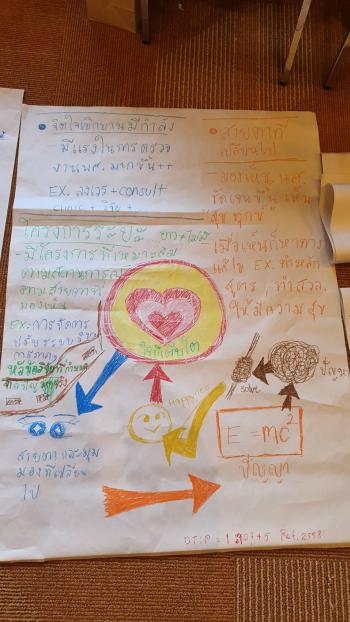 • จิตใจเบิกบานมีกำลัง
- มีแรงในการตรวจ
งานนศ. มากขึ้น++
EX. ลงเวร + consult
+ วิจัย +
โครงการระยะ ยาว
- มีโครงการที่เหมาะสม
ตามสถานการณ์
ตามสายตาที่
มองเห็น
EX. การจัดการ
• สายตาที่
เปลี่ยนไป
- มองเห็น นศ.
ชัดเจนขึ้น เห็น
"สุข ทุกข์"
เมื่อเห็นก็หาทาง
แก้ไข EX. ทำหลัก
สูตร, ทำสวล.
ให้มีความสุข
ใจที่เติบโต
Happiness
solve
ปัญหา
E = mc²
ปัญญา
สายตาและมุม
มองที่เปลี่ยน
ไป